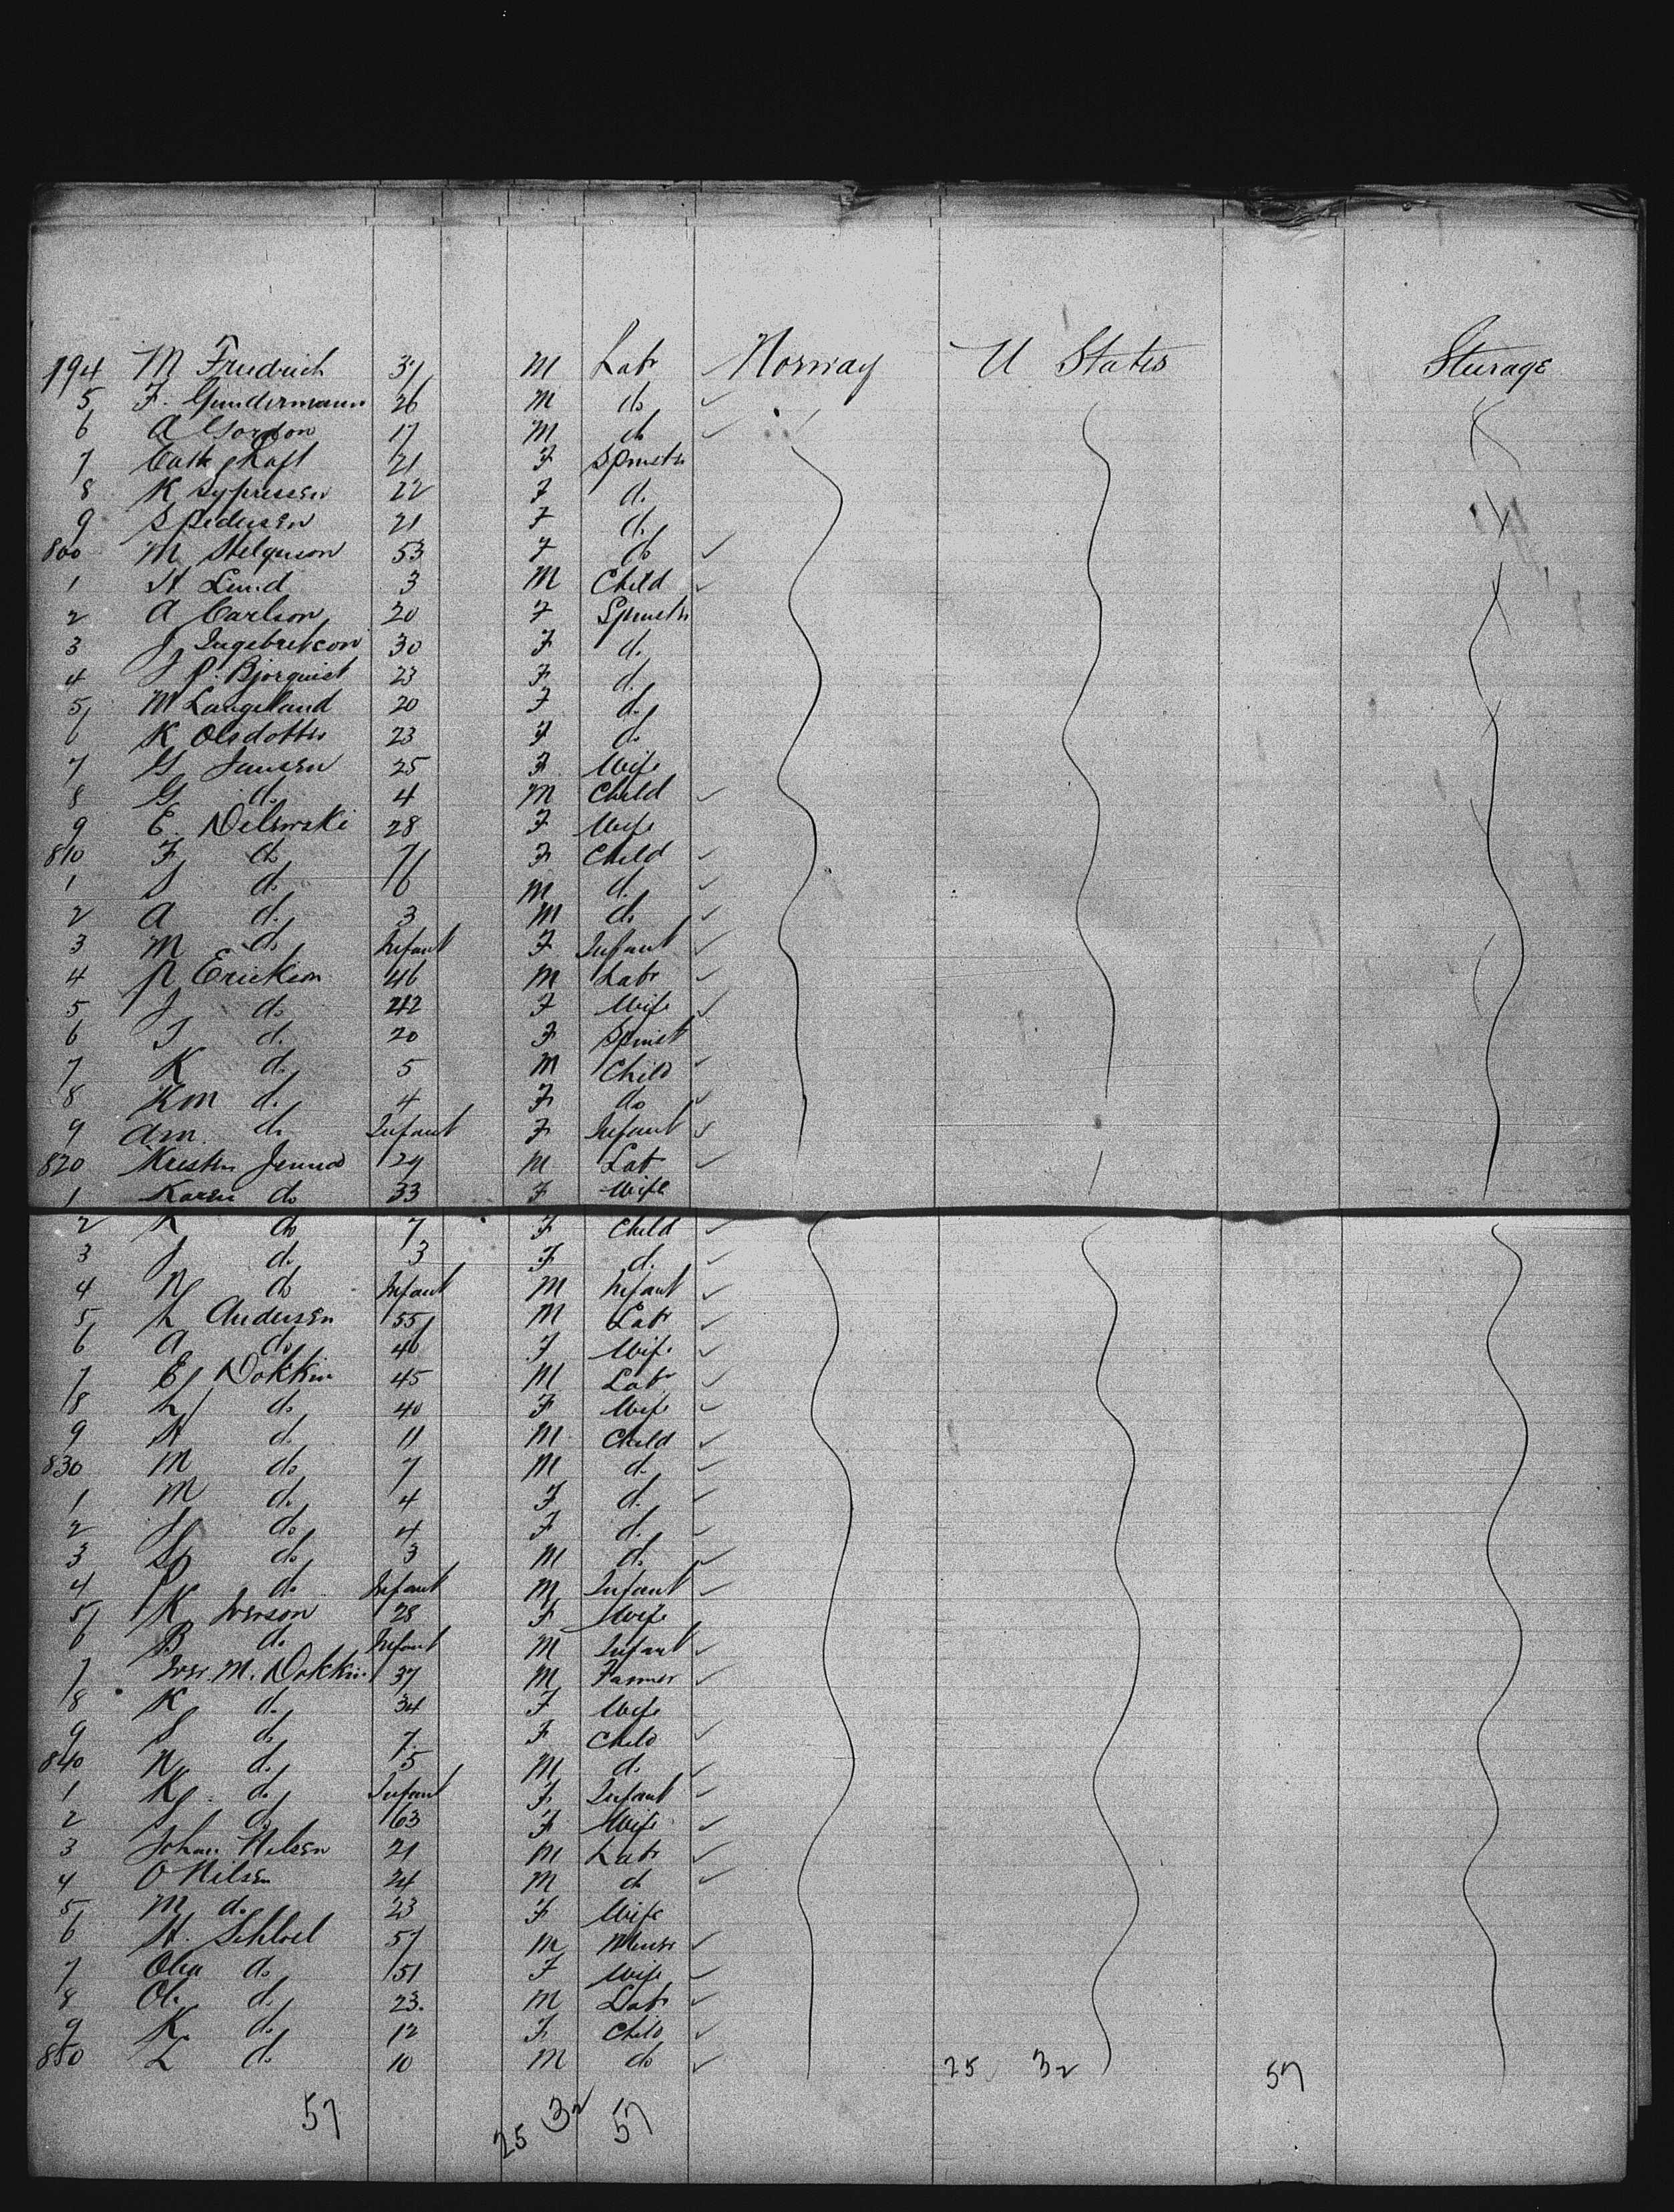 794 M Friedrich 37 M Labr Norway U States Steerage
5 F. Gundermann 26 M do
6 A Gordon 17 M do
7 Cath 21 F Spinstr
8 K 22 F do
9 S Pedersen 21 F do
800 M Helgeson 53 F do
1 H Lund 3 M Child
2 A Carlson 20 F Spinstr
3 J Ingebretson 30 F do
4 J P. Bjorquist 23 F do
5 M Langeland 20 F do
6 K Olsdotter 23 F do
7 G Jansen 25 F Wife
8 G do 4 M Child
9 E. 28 F Wife
810 F do 7 F Child
1 S do 6 M do
2 A do 3 M do
3 M do Infant F Infant
4 N Erickson 46 M Labr
5 J do 42 F Wife
6 J do 20 F Spinst
7 K do 5 M Child
8 KM do 4 F do
9 AM. do Infant F Infant
820 29 M Lab
1 Karen do 33 F Wife
2 K do 7 F Child
3 J do 3 F do
4 N do Infant M Infant
5 L Andersen 55 M Labr
6 A do 46 F Wife
7 E Dokkin 45 M Labr
8 L do 40 F Wife
9 H do 11 M Child
830 M do 7 M do
1 M do 4 F do
2 do 4 F do
3 do 3 M do
4 do Infant M Infant
5 K Iverson 28 F Wife
6 B do Infant M Infant
7 Iver. M. Dokkin 37 M Farmer
8 K do 34 F Wife
9 S do 7 F Child
840 N do 5 M do
1 K do Infant F Infant
2 S do 63 F Wife
3 Johan Nilsen 21 M Labr
4 O Nilsen 24 M do
5 M do 23 F Wife
6 H. 57 M
7 do 51 F Wife
8 Ol. do 23. M Labr
9 K. do 12 F Child
850 L do 10 M do 25 32 57
57 25 32 57